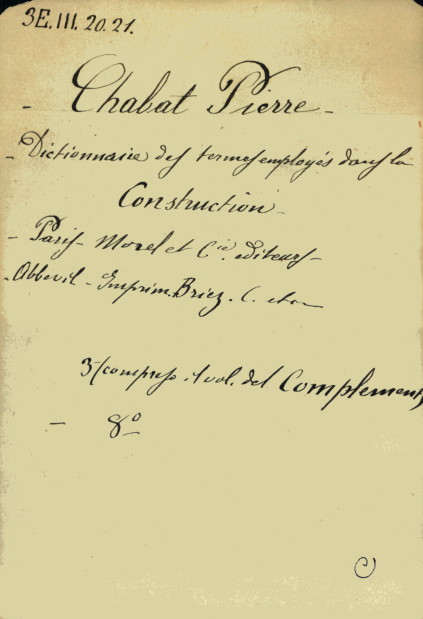 3E.III.20.21.
- Chabat Pierre -
- Dictionnaire des termes employés dans la
Construction -
- Paris - Morel et Cie editeurs -
- Abbevil - Imprim. Briez. C. et
3 compres. 1 vol. del Complement
- 8º